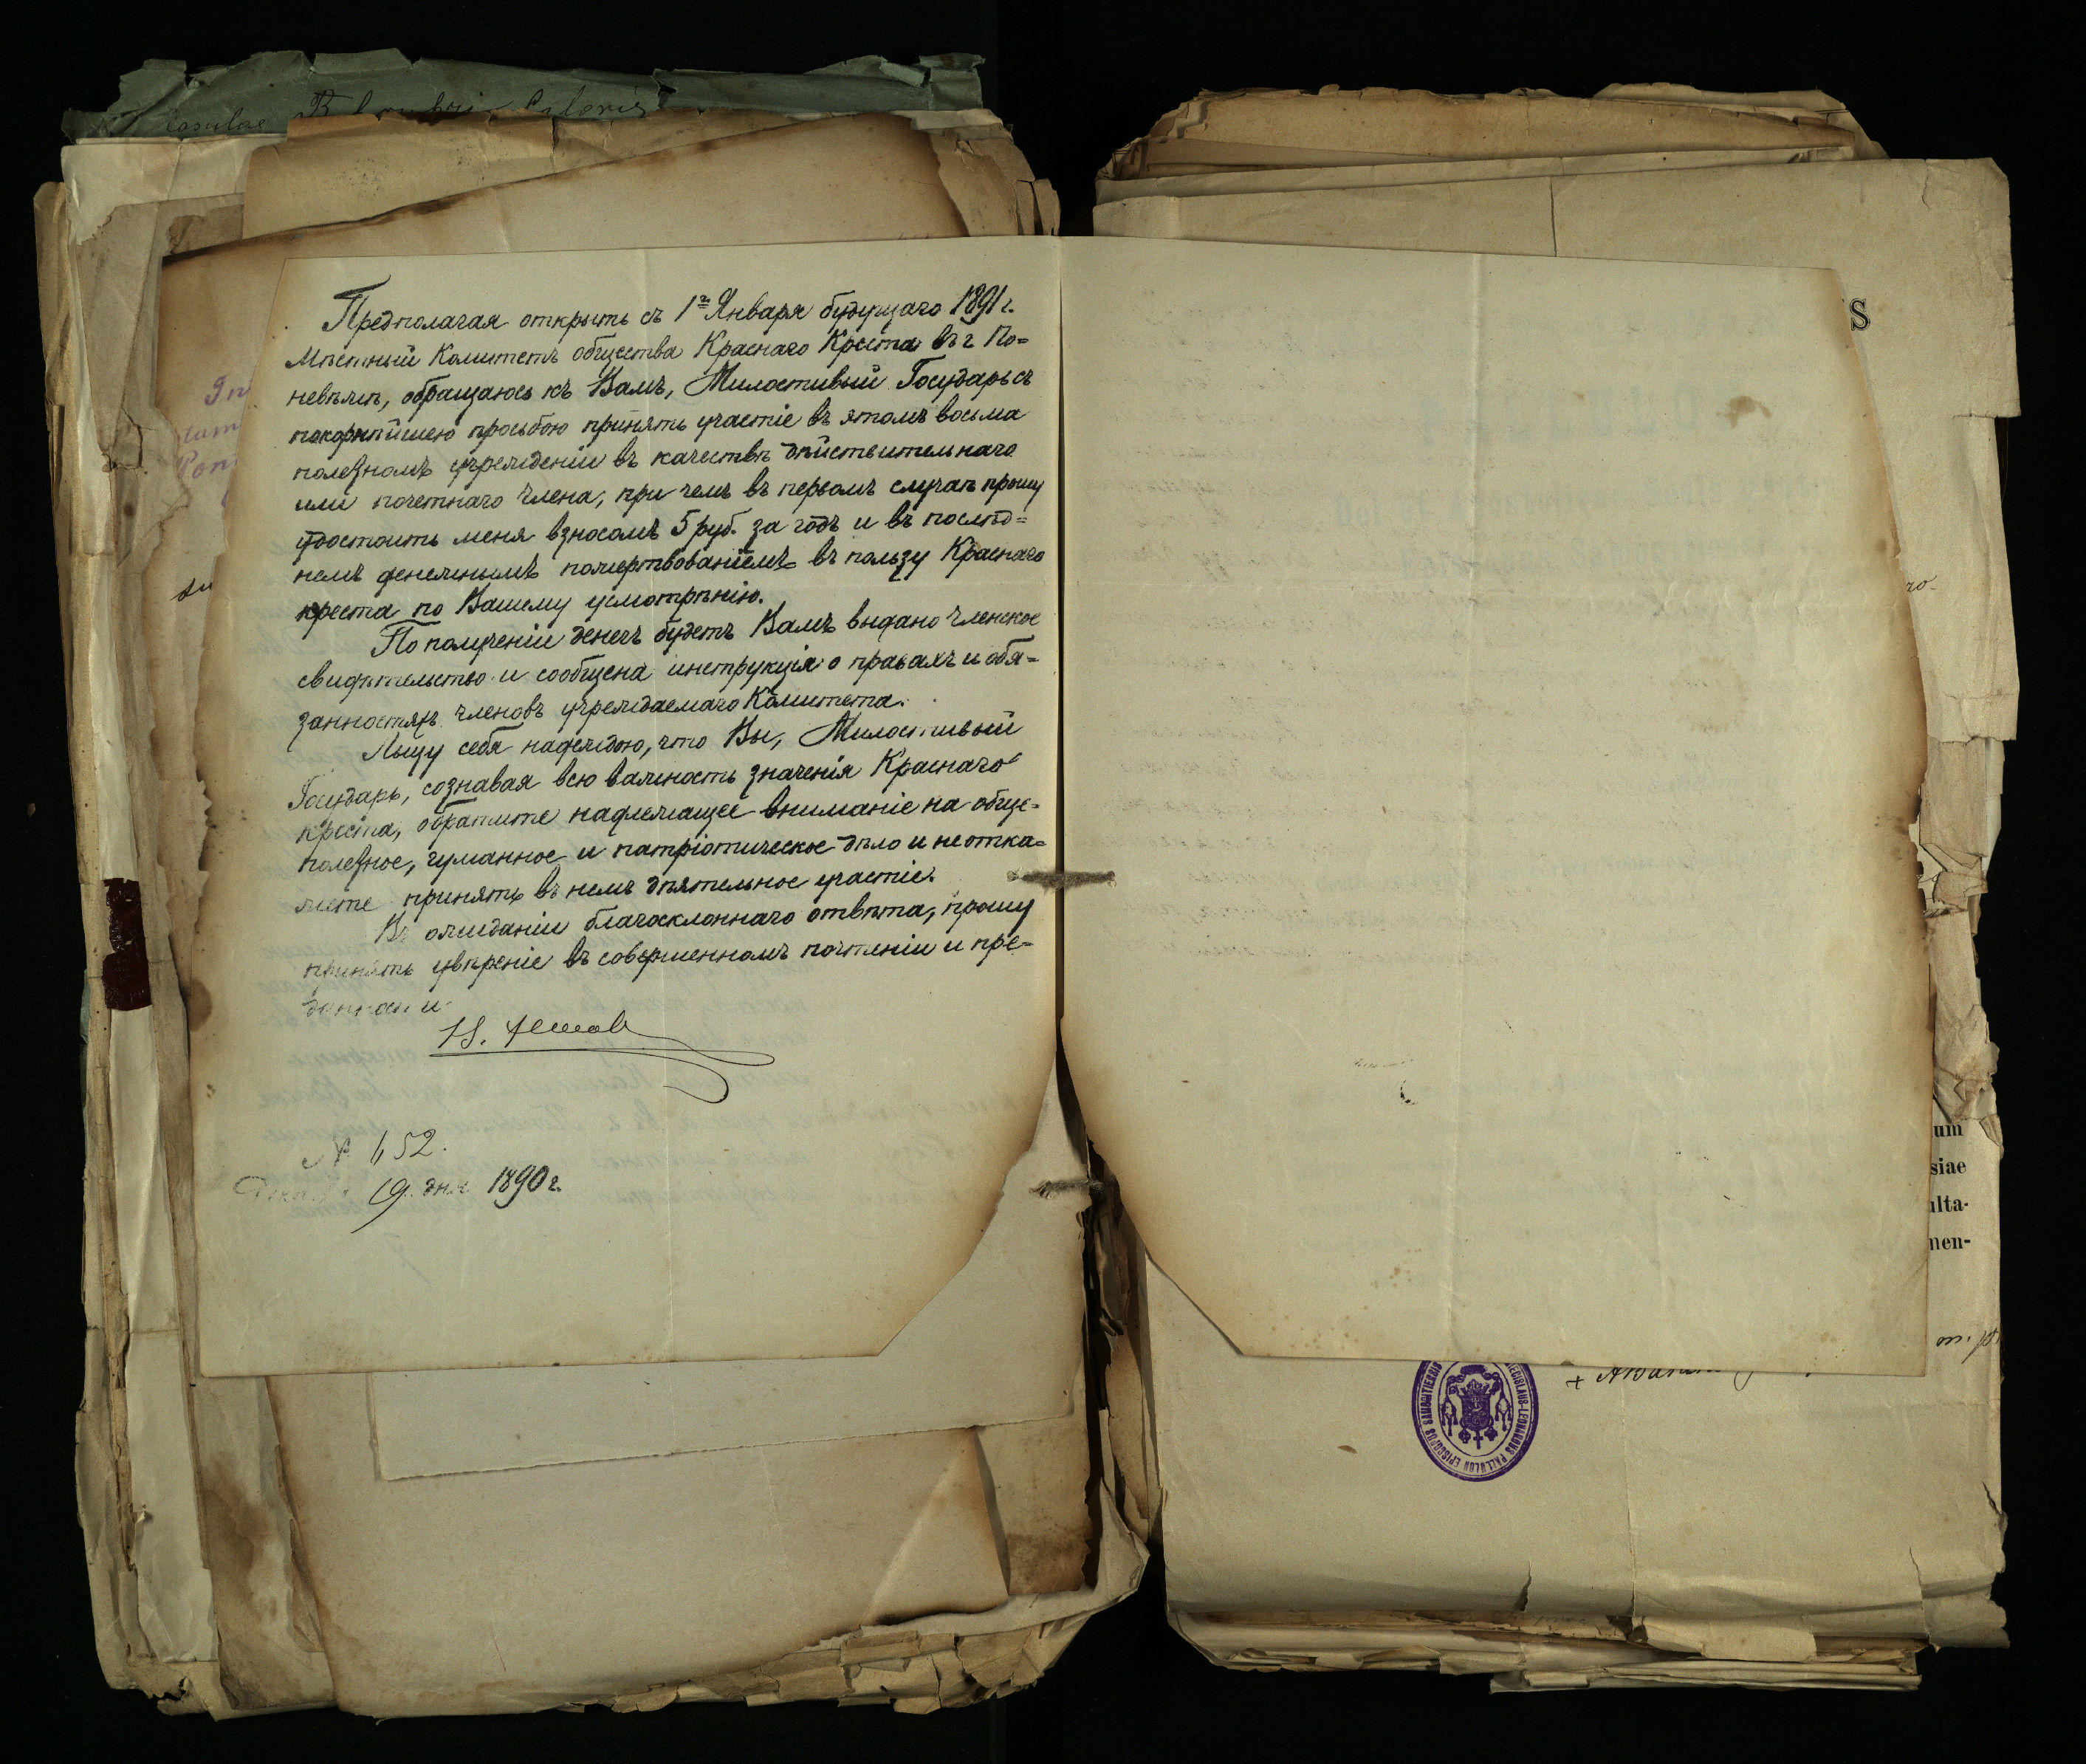 Casulae
Предполагая открыть съ 1го Января будущаго 1891 г.
Мѣстный Комитетъ общества Краснаго Креста въ г. По=
невѣжѣ, обращаюсь къ Вамъ, Милостивый Государь съ
покорнѣйшею просьбою принять участіе въ этомъ весьма
полезномъ учрежденіи въ качествѣ дѣйствительнаго
или почетнаго члена, при чемъ въ первомъ случаѣ прошу
удостоить меня взносомъ 5 руб. за годъ и въ послѣд=
немъ денежнымъ пожертвованіемъ въ пользу Краснаго
креста по Вашему усмотрѣнію.
По полученіи денегъ будетъ Вамъ выдано членское
свидѣтельство и сообщена инструкція о правахъ и обя=
занностяхъ членовъ учреждаемаго Комитета.
Льщу себя надеждою, что Вы, Милостивый
Государь, сознавая всю важность значенія Краснаго
креста, обратите надлежащее вниманіе на обще=
полезное, гуманное и патріотическое дѣло и не отка=
жите принять въ немъ дѣятельное участіе.
Въ ожиданіи благосклоннаго отвѣта, прошу
принять увѣреніе въ совершенномъ почтеніи и пре=
данности
№ 652.
19 дня 1890 г.
S
um
siae
ulta-
men-
EPISCOPUS